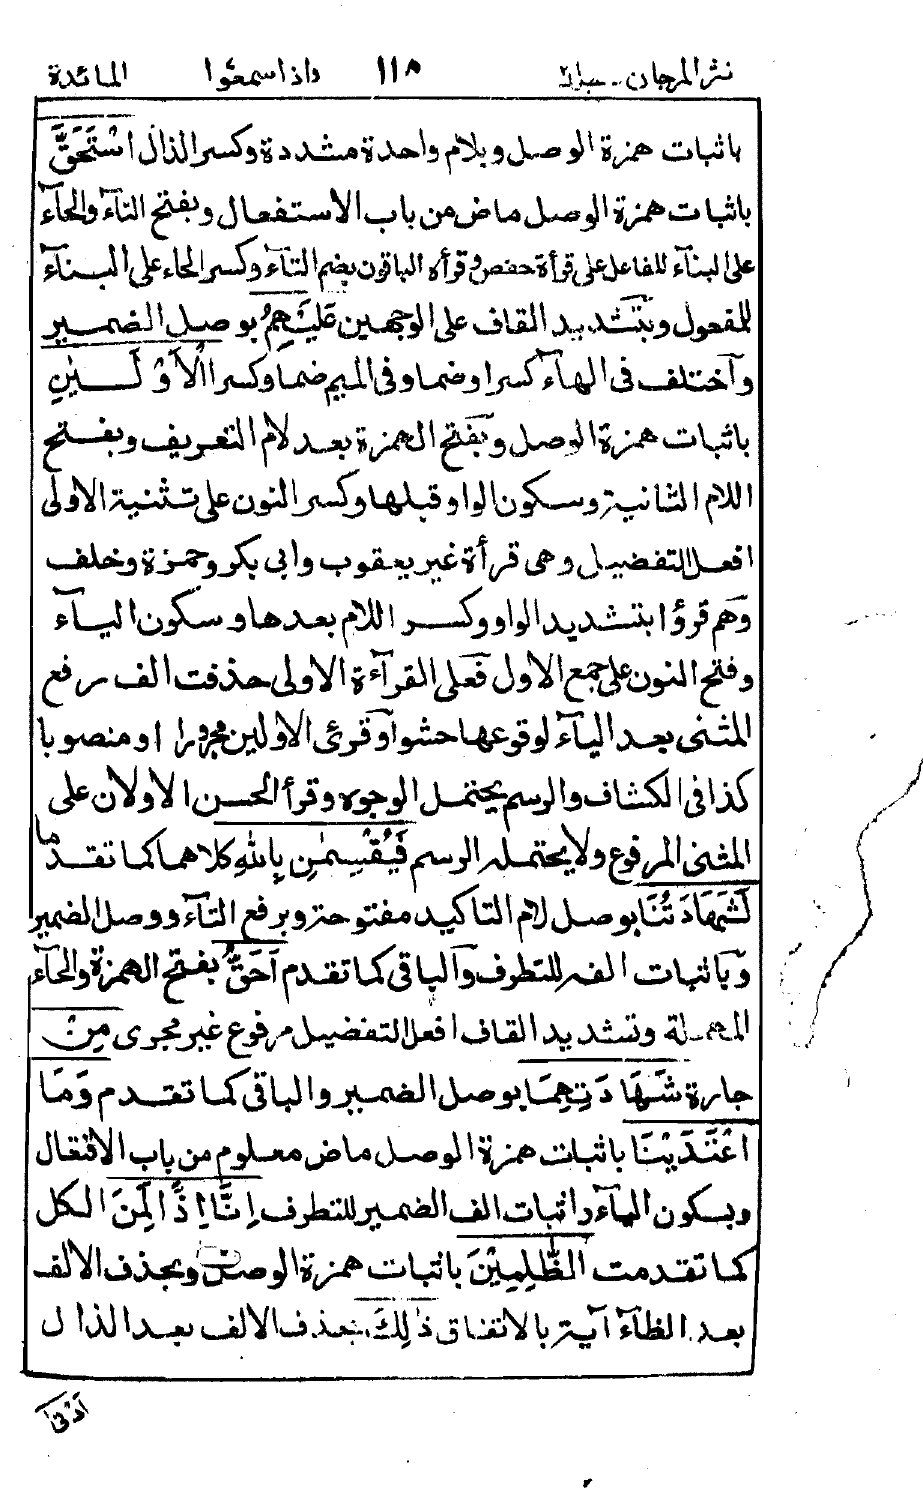 نثر المرجان - جلد ٢ ١١٥ واذا سمعوا المائدة
باثبات همزة الوصل وبلام واحدة مشددة وكسر الذال اسْتَحَقَّ
باثبات همزة الوصل ماض من باب الاستفعال وبفتح التآء والحآء
على البنآء للفاعل على قرأة حفص وقرأه الباقون بضم التآء وكسر الحاء على البنآء
للمفعول وبتشديد القاف على الوجهين عَلَيْهِمُ بوصل الضمير
وآختلف فى الهآء كسرا وضما وفى الميم ضما وكسرا الْأَوْلَـــيٰنِ
باثبات همزة الوصل وبفتح الهمزة بعد لام التعريف وبفتح
اللام الثانية وسكون الواو قبلها وكسر النون على تثنية الاولى
افعل التفضيل وهى قرأة غير يعقوب وابى بكر وحمزة وخلف
وهم قرؤا بتشديد الواو وكسر اللام بعدها وسكون اليآء
وفتح النون على جمع الاول فعلى القرآءة الاولى حذفت الف رفع
المثنى بعد اليآء لوقوعها حشوا وقرئ الاولين مجرورا او منصوبا
كذا فى الكشاف والرسم يحتمل الوجوه وقرأ الحسن الاولان على
المثنى المرفوع ولا يحتمله الرسم فَيُقْسِمٰنِ بِاللهِ كلاهما كما تقدما
لَشَهَادَتُنَا بوصل لام التاكيد مفتوحة وبرفع التآء ووصل الضمير
وباثبات الفه للتطرف والباقى كما تقدم اَحَقُّ بفتح الهمزة والحآء
المهملة وتشديد القاف افعل التفضيل مرفوع غير مجرى مِنْ
جارة شَهَادَتِهِمَا بوصل الضمير والباقى كما تقدم وَمَا
اعْتَدَيْنَا باثبات همزة الوصل ماض معلوم من باب الافتعال
وبسكون اليآء واثبات الف الضمير للتطرف اِنَّا اِذًا لَّمِنَ الكل
كما تقدمت الظّٰلِمِيْنَ باثبات همزة الوصل وبحذف الالف
بعد الظآء آية بالاتفاق ذٰلِكَ بحذف الالف بعد الذال
اَدْنىٰ